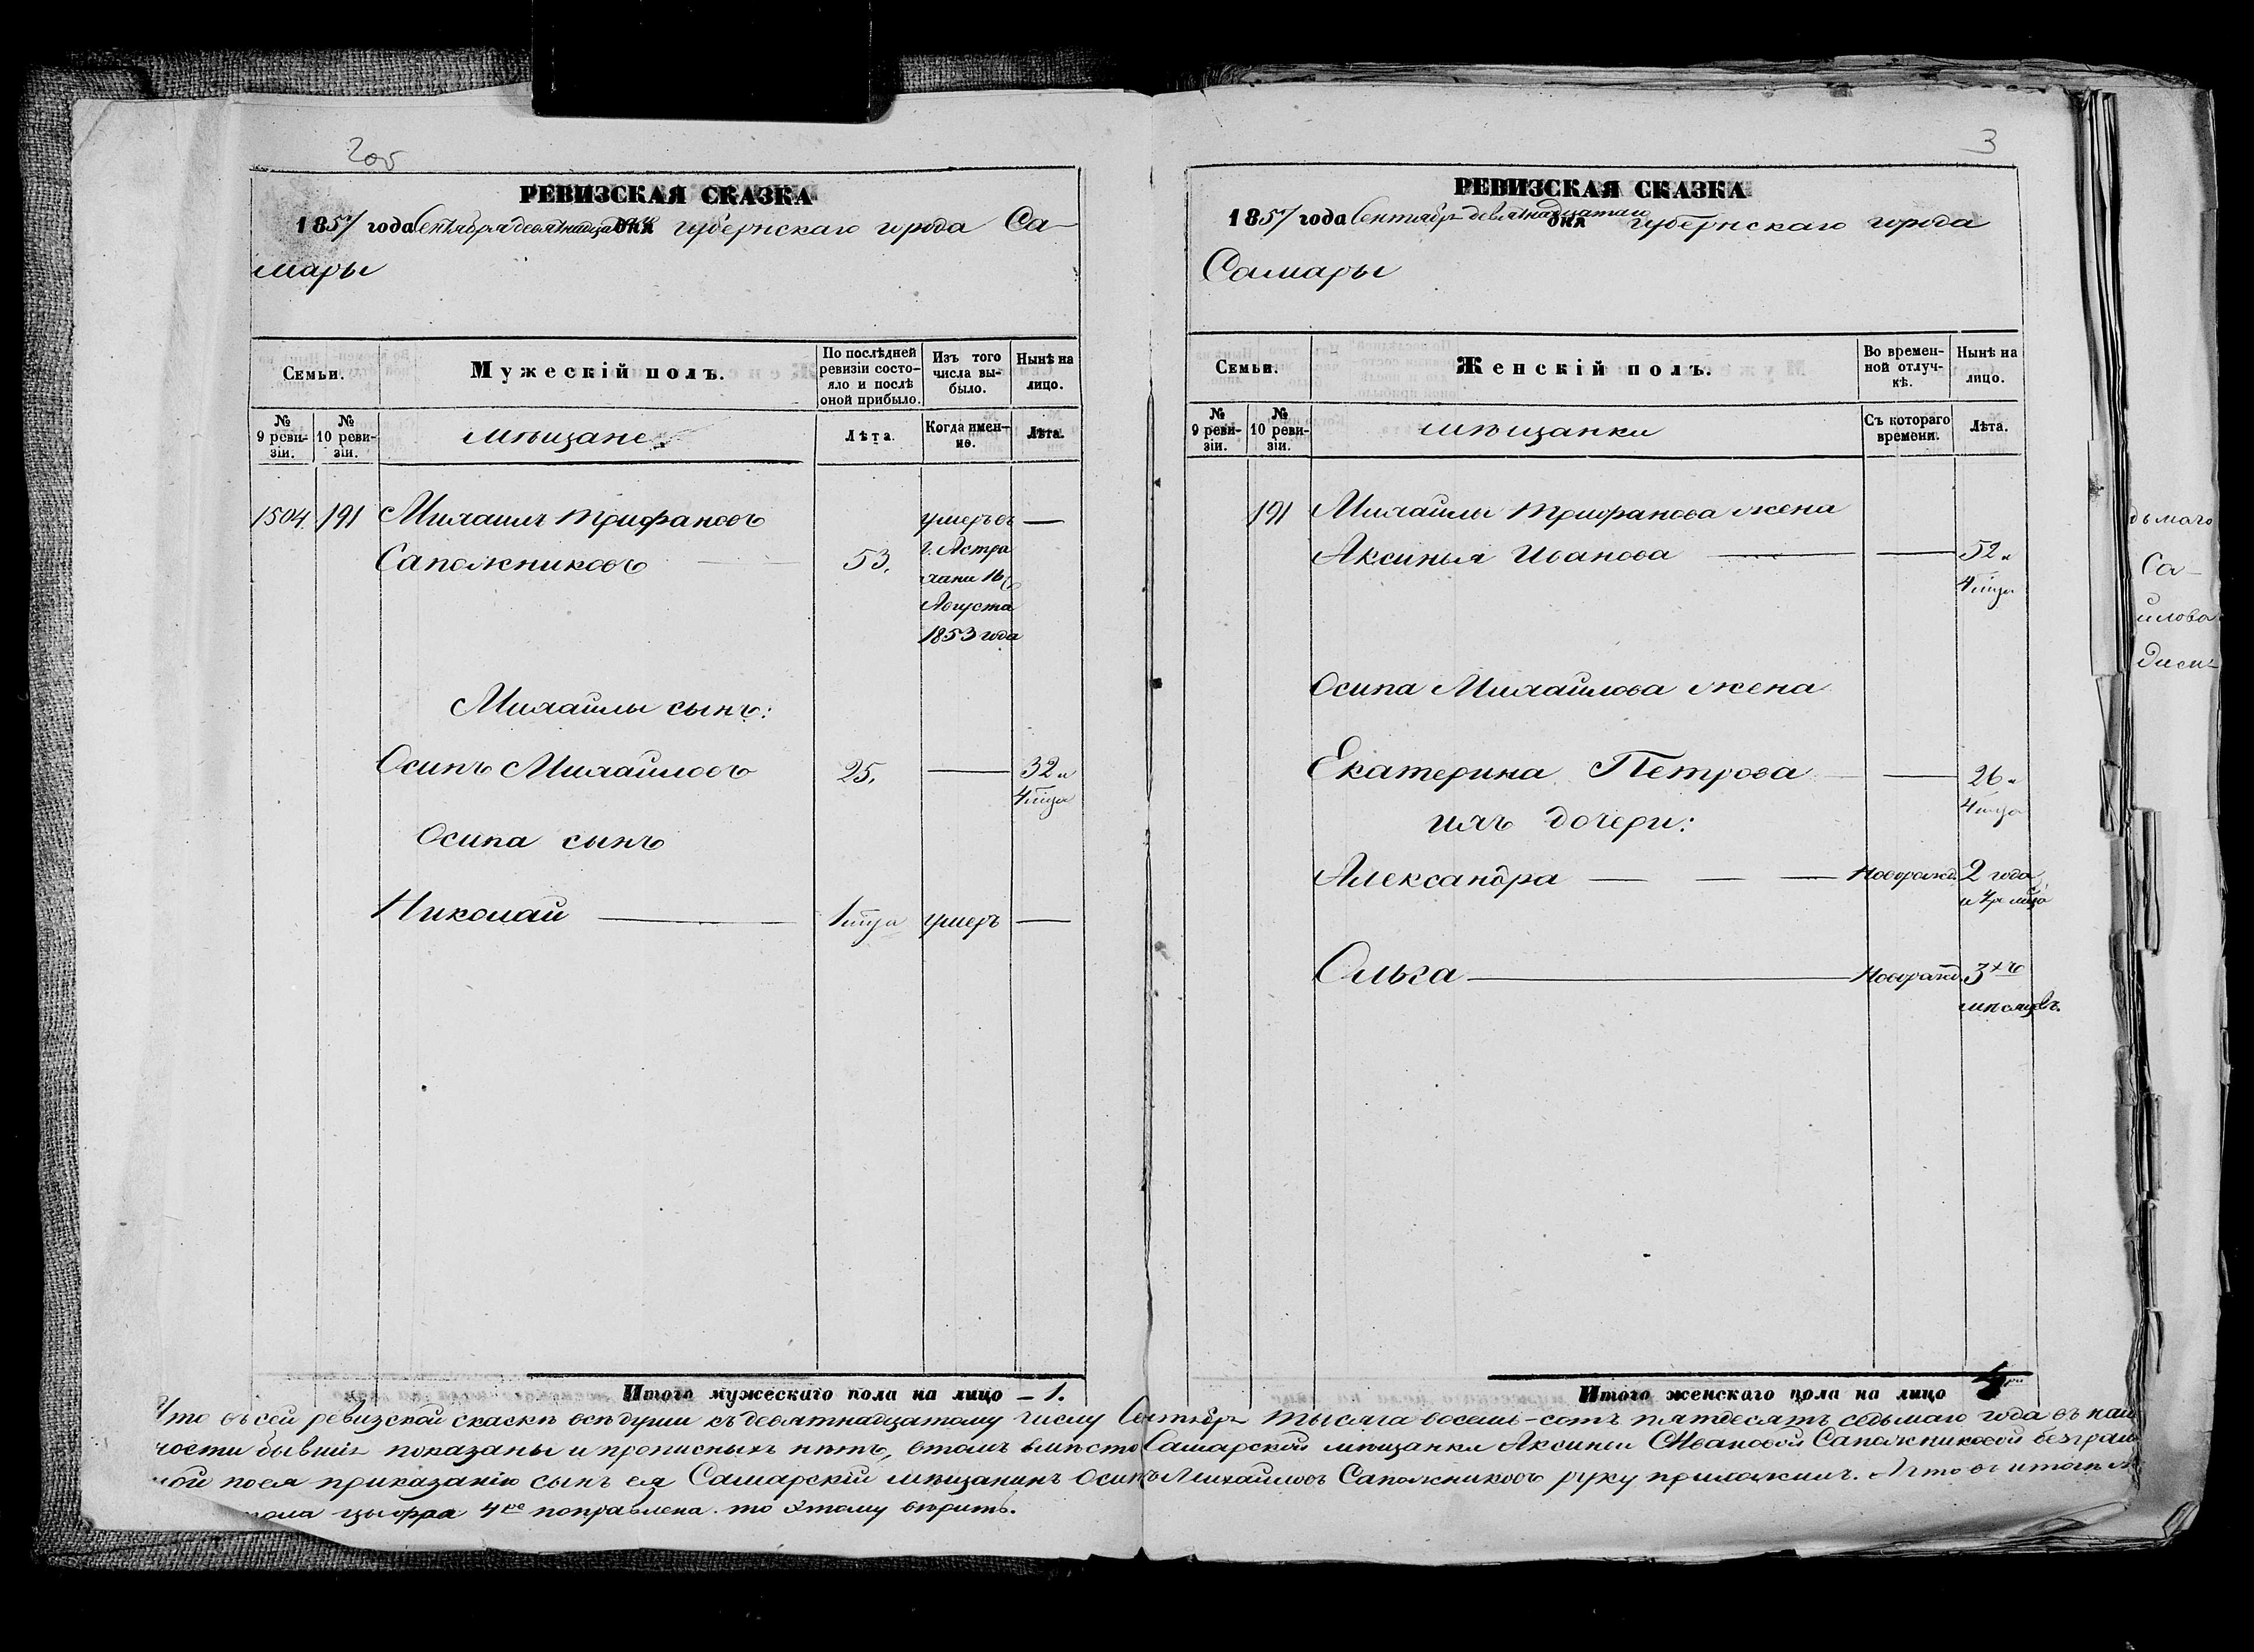 205
РЕВИЗСКАЯ СКАЗКА
1857 года Сентября девятнадца дня губернскаго города Са-
мары
Семьи.
Мужескій полъ.
По послѣдней ревизіи состояло и послѣ оной прибыло.
Изъ того числа выбыло.
Нынѣ на лицо.
№ 9 ревизіи.
№ 10 ревизіи.
мѣщане
Лѣта.
Когда именно.
Лѣта.
1504. 191 Михаилъ Трифановъ умеръ въ —
Сапожниковъ — 53. г. Астра
хани 16
Августа
1853 года
Михайлы сынъ:
Осипъ Михайловъ 25. — 32 и
4 мца
Осипа сынъ
Николай — 1 мца умеръ —
Итого мужескаго пола на лицо – 1.
3
РЕВИЗСКАЯ СКАЗКА
1857 года Сентября девятнадцатаго дня губернскаго города
Самары
Семьи.
Женскій полъ.
Во временной отлучкѣ.
Нынѣ на лицо.
№ 9 ревизіи.
№ 10 ревизіи.
мѣщанки
Съ котораго времени.
Лѣта.
191 Михайлы Трифанова жена
Аксинья Иванова — — 52 и
4 мца
Осипа Михайлова жена
Екатерина Петрова — 26 и
4 мца
ихъ дочери:
Александра — — — Новорожд. 2 года
и 4ре мца
Ольга — Новорожд. 3хъ
мѣсяцевъ.
Итого женскаго пола на лицо 4
Что въ сей ревизской скаскѣ всѣ души къ девятнадцатому числу Сентября тысяча восемь-сотъ пятдесятъ седьмаго года въ налич
ности бывшія показаны и прописныхъ нѣтъ, втомъ вмѣсто Самарской мѣщанки Аксиньи Ивановой Сапожниковой безграмот
ной поея приказанію сынъ ея Самарскій мѣщанинъ Осипъ Михайловъ Сапожниковъ руку приложилъ. А что въ итогѣ
пола цыфра 4ре поправлена. то этому вѣрить.
дьмаго
Са-
илова